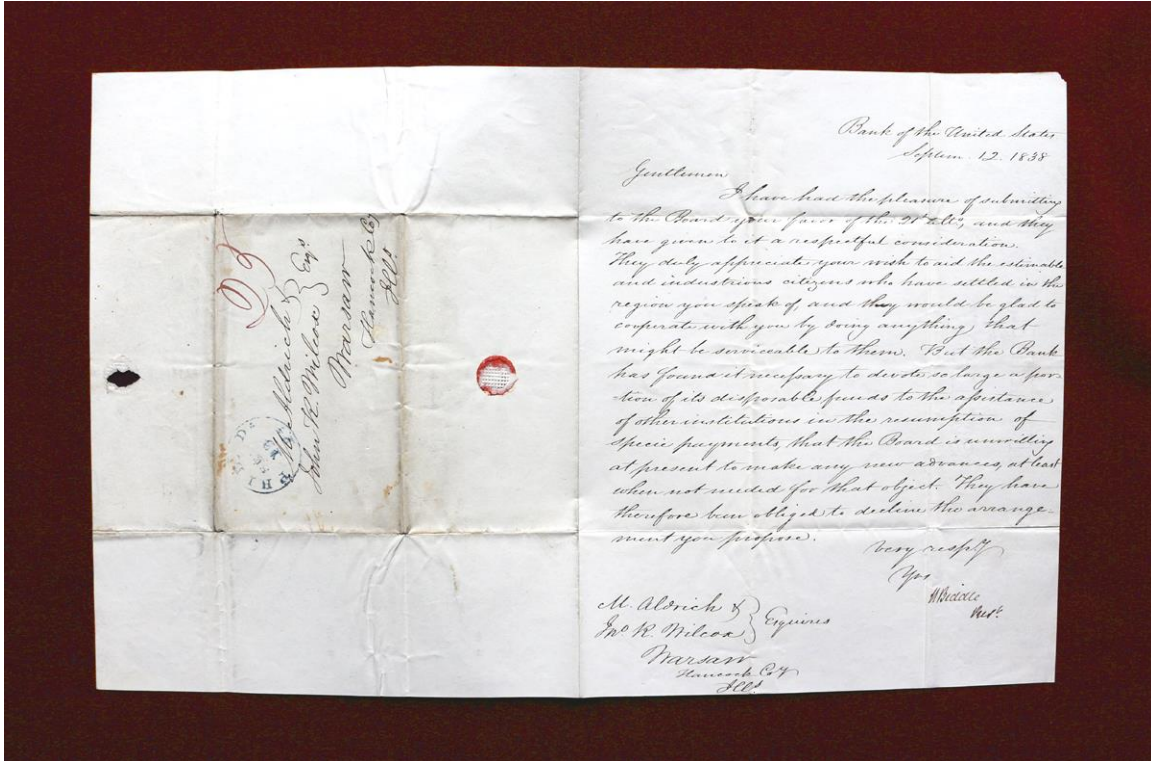 Bank of the United States
Septem. 12. 1838
Gentlemen
I have had the pleasure of submitting
to the Board your favor of the 20 ulto, and they
have given to it a respectful consideration.
They duly appreciate your wish to aid the estimable
and industrious citizens who have settled in the
region you speak of, and they would be glad to
cooperate with you by doing anything that
might be serviceable to them. But the Bank
has found it necessary to devote so large a por-
-tion of its disposable funds to the assistance
of other institutions in the resumption of
specie payments, that the Board is unwilling
at present to make any new advances, at least
when not needed for that object. They have
therefore been obliged to decline the arrange-
ment you propose.
Very respy
Yrs
N Biddle
Prest.
M. Aldrich &
Jno. K. Wilcox } Esquires
Warsaw
Hancock Coy
Ills
M. Aldrich &
John K. Wilcox } Esqs
Warsaw
Hancock Cy
Ills